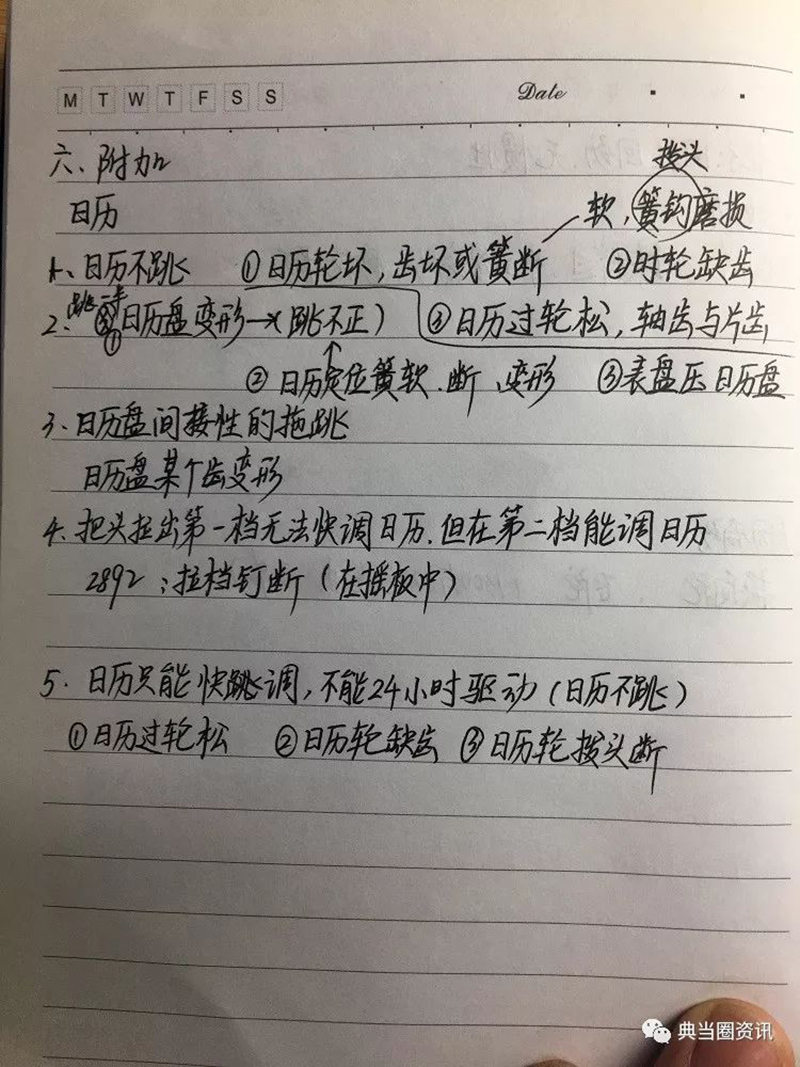 M T W T F S S Date
六、附加
日历
拨头
软，簧钩磨损
1、日历不跳 ①日历轮坏，齿坏或簧断 ②时轮缺齿
2、跳一半 ①日历盘变形→(跳不正) ③日历过轮松，轴齿与片齿
②日历定位簧软、断、变形 ③表盘压日历盘
3、日历盘间接性的拖跳
日历盘某个齿变形
4、把头拉出第一档无法快调日历.但在第二档能调日历
2892：拉档钉断（在摇板中）
5、日历只能快跳调，不能24小时驱动（日历不跳）
①日历过轮松 ②日历轮缺齿 ③日历轮拨头断
典当圈资讯